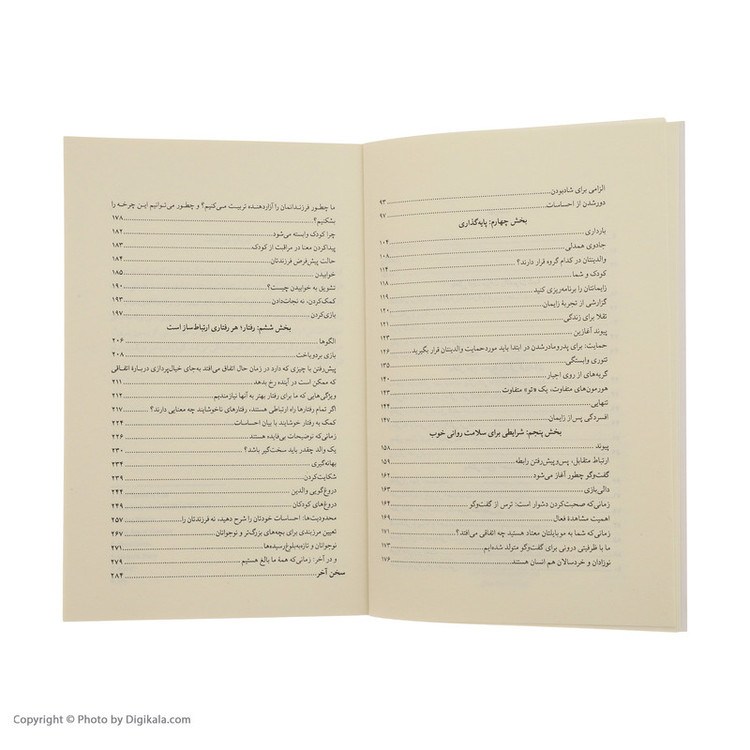 الزامی برای شادبودن ۹۳
دورشدن از احساسات ۹۷
بخش چهارم: پایه‌گذاری
بارداری ۱۰۴
جادوی همدلی ۱۰۸
والدینتان در کدام گروه قرار دارند؟ ۱۱۴
کودک و شما ۱۱۸
زایمانتان را برنامه‌ریزی کنید ۱۱۹
گزارشی از تجربهٔ زایمان ۱۲۰
تقلا برای زندگی ۱۲۱
پیوند آغازین ۱۲۳
حمایت: برای پدرومادرشدن در ابتدا باید موردحمایت والدینتان قرار بگیرید ۱۲۶
تئوری وابستگی ۱۳۵
گریه‌های از روی اجبار ۱۴۰
هورمون‌های متفاوت، یک «تو» متفاوت ۱۴۳
تنهایی ۱۴۴
افسردگی پس‌از زایمان ۱۴۷
بخش پنجم: شرایطی برای سلامت روانی خوب
پیوند ۱۵۸
ارتباط متقابل، پس‌وپیش‌رفتن رابطه ۱۵۹
گفت‌وگو چطور آغاز می‌شود ۱۶۰
دالی‌بازی ۱۶۳
زمانی‌که صحبت‌کردن دشوار است: ترس از گفت‌وگو ۱۶۴
اهمیت مشاهدهٔ فعال ۱۶۹
زمانی‌که شما به موبایلتان معتاد هستید چه اتفاقی می‌افتد؟ ۱۷۱
ما با ظرفیتی درونی برای گفت‌وگو متولد شده‌ایم ۱۷۳
نوزادان و خردسالان هم انسان هستند ۱۷۶
ما چطور فرزندانمان را آزاردهنده تربیت می‌کنیم؟ و چطور می‌توانیم این چرخه را
بشکنیم؟ ۱۷۸
چرا کودک وابسته می‌شود ۱۸۲
پیداکردن معنا در مراقبت از کودک ۱۸۳
حالت پیش‌فرض فرزندتان ۱۸۴
خوابیدن ۱۸۵
تشویق به خوابیدن چیست؟ ۱۹۰
کمک‌کردن، نه نجات‌دادن ۱۹۳
بازی‌کردن ۱۹۷
بخش ششم: رفتار؛ هر رفتاری ارتباط‌ساز است
الگوها ۲۰۶
بازی بردوباخت ۲۰۸
پیش‌رفتن با چیزی که دارد در زمان حال اتفاق می‌افتد به‌جای خیال‌پردازی دربارهٔ اتفاقی
که ممکن است در آینده رخ بدهد ۲۱۱
ویژگی‌هایی که ما برای رفتار بهتر به آنها نیازمندیم ۲۱۲
اگر تمام رفتارها راه ارتباطی هستند، رفتارهای ناخوشایند چه معنایی دارند؟ ۲۱۷
کمک به رفتار خوشایند با بیان احساسات ۲۲۴
زمانی‌که توضیحات بی‌فایده هستند ۲۲۶
یک والد چقدر باید سخت‌گیر باشد؟ ۲۳۰
بهانه‌گیری ۲۳۴
شکایت‌کردن ۲۳۹
دروغ‌گویی والدین ۲۴۴
دروغ‌های کودکان ۲۴۹
محدودیت‌ها: احساسات خودتان را شرح دهید، نه فرزندتان را ۲۵۷
تعیین مرزبندی برای بچه‌های بزرگ‌تر و نوجوانان ۲۶۷
نوجوانان و تازه‌به‌بلوغ‌رسیده‌ها ۲۷۱
و در آخر: زمانی‌که همهٔ ما بالغ هستیم ۲۷۹
سخن آخر ۲۸۴
Copyright © Photo by Digikala.com